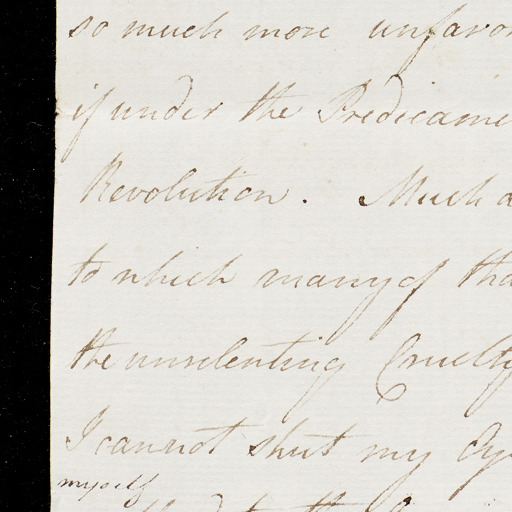 so much more unfavor
if under the Predicame
Revolution. Much a
to which many of tha
the unrelenting Cruelty
I cannot shut my Ey
myself